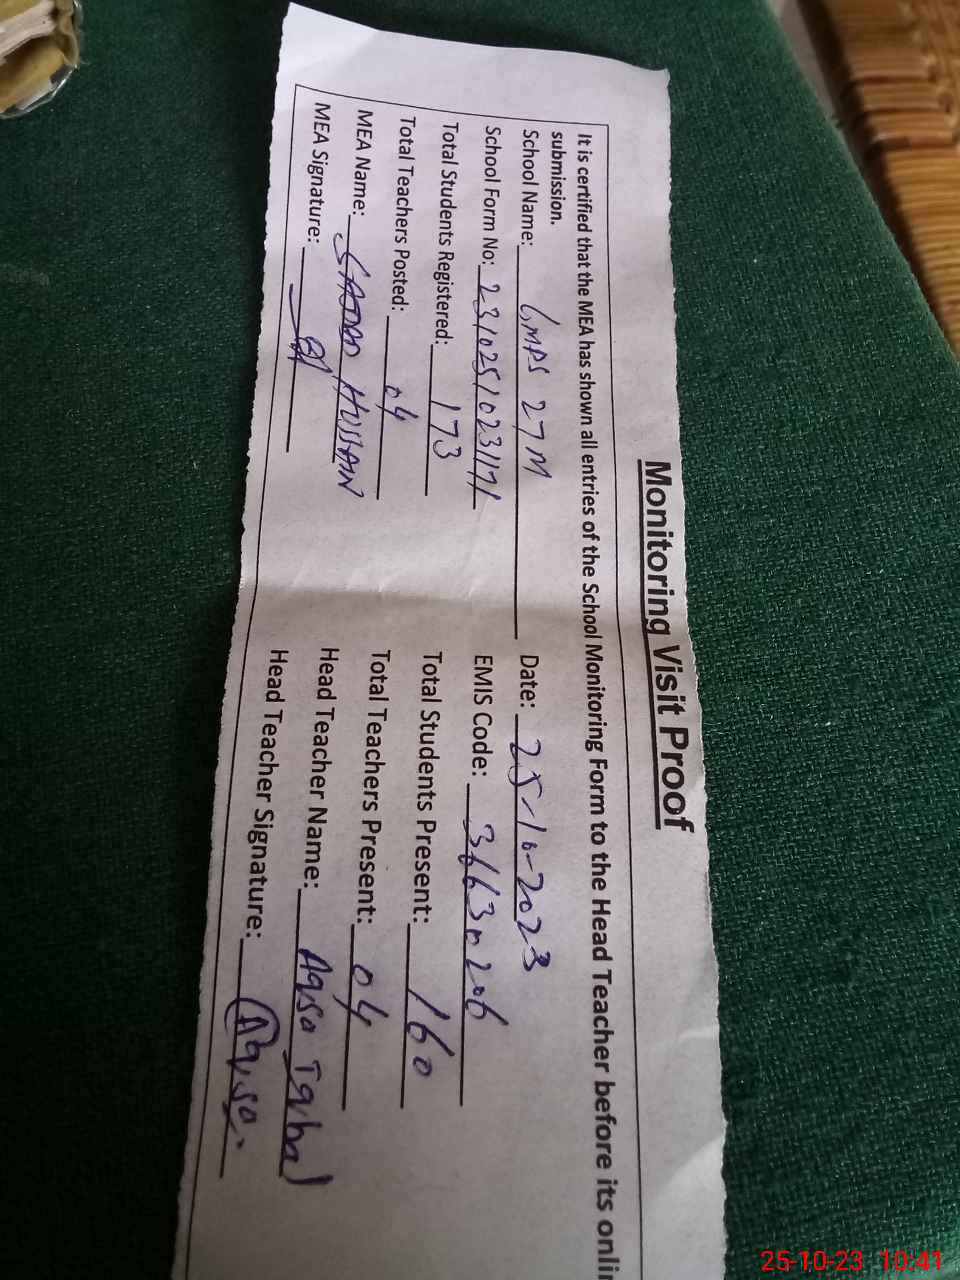 Monitoring Visit Proof
It is certified that the MEA has shown all entries of the School Monitoring Form to the Head Teacher before its onli
submission.
School Name: GMPS 27 M Date: 25-10-2023
School Form No: EMIS Code: 36630206
Total Students Registered: 173 Total Students Present: 160
Total Teachers Posted: 04 Total Teachers Present: 04
MEA Name: HUSSAIN Head Teacher Name: Aqsa Iqbal
MEA Signature: Head Teacher Signature: Aqsa.
25-10-23 10:41